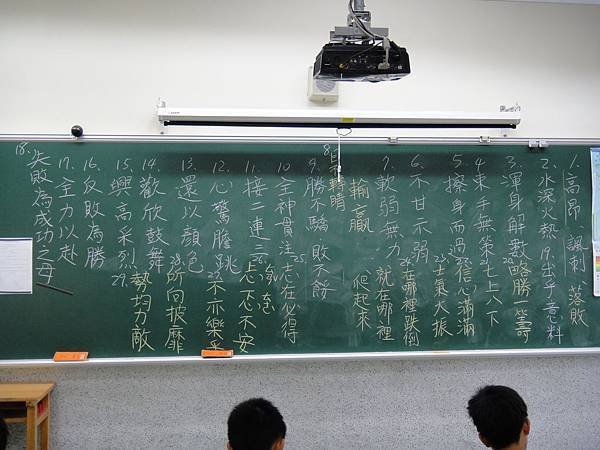 1.高昂 諷刺 落敗
2.水深火熱 19.出乎意料
3.渾身解數 略勝一籌
4.束手無策 七上八下
5.擦身而過 信心滿滿
6.不甘示弱 士氣大振
7.軟弱無力 26.在哪裡跌倒
就在哪裡
爬起來
輸贏
8.目不轉睛
9.勝不驕 敗不餒
10.全神貫注 25.志在必得
11.接二連三 26.忐忑不安
12.心驚膽跳 27.不亦樂乎
13.還以顏色 28.所向披靡
14.歡欣鼓舞
15.興高采烈 29.勢均力敵
16.反敗為勝
17.全力以赴
18.失敗為成功之母